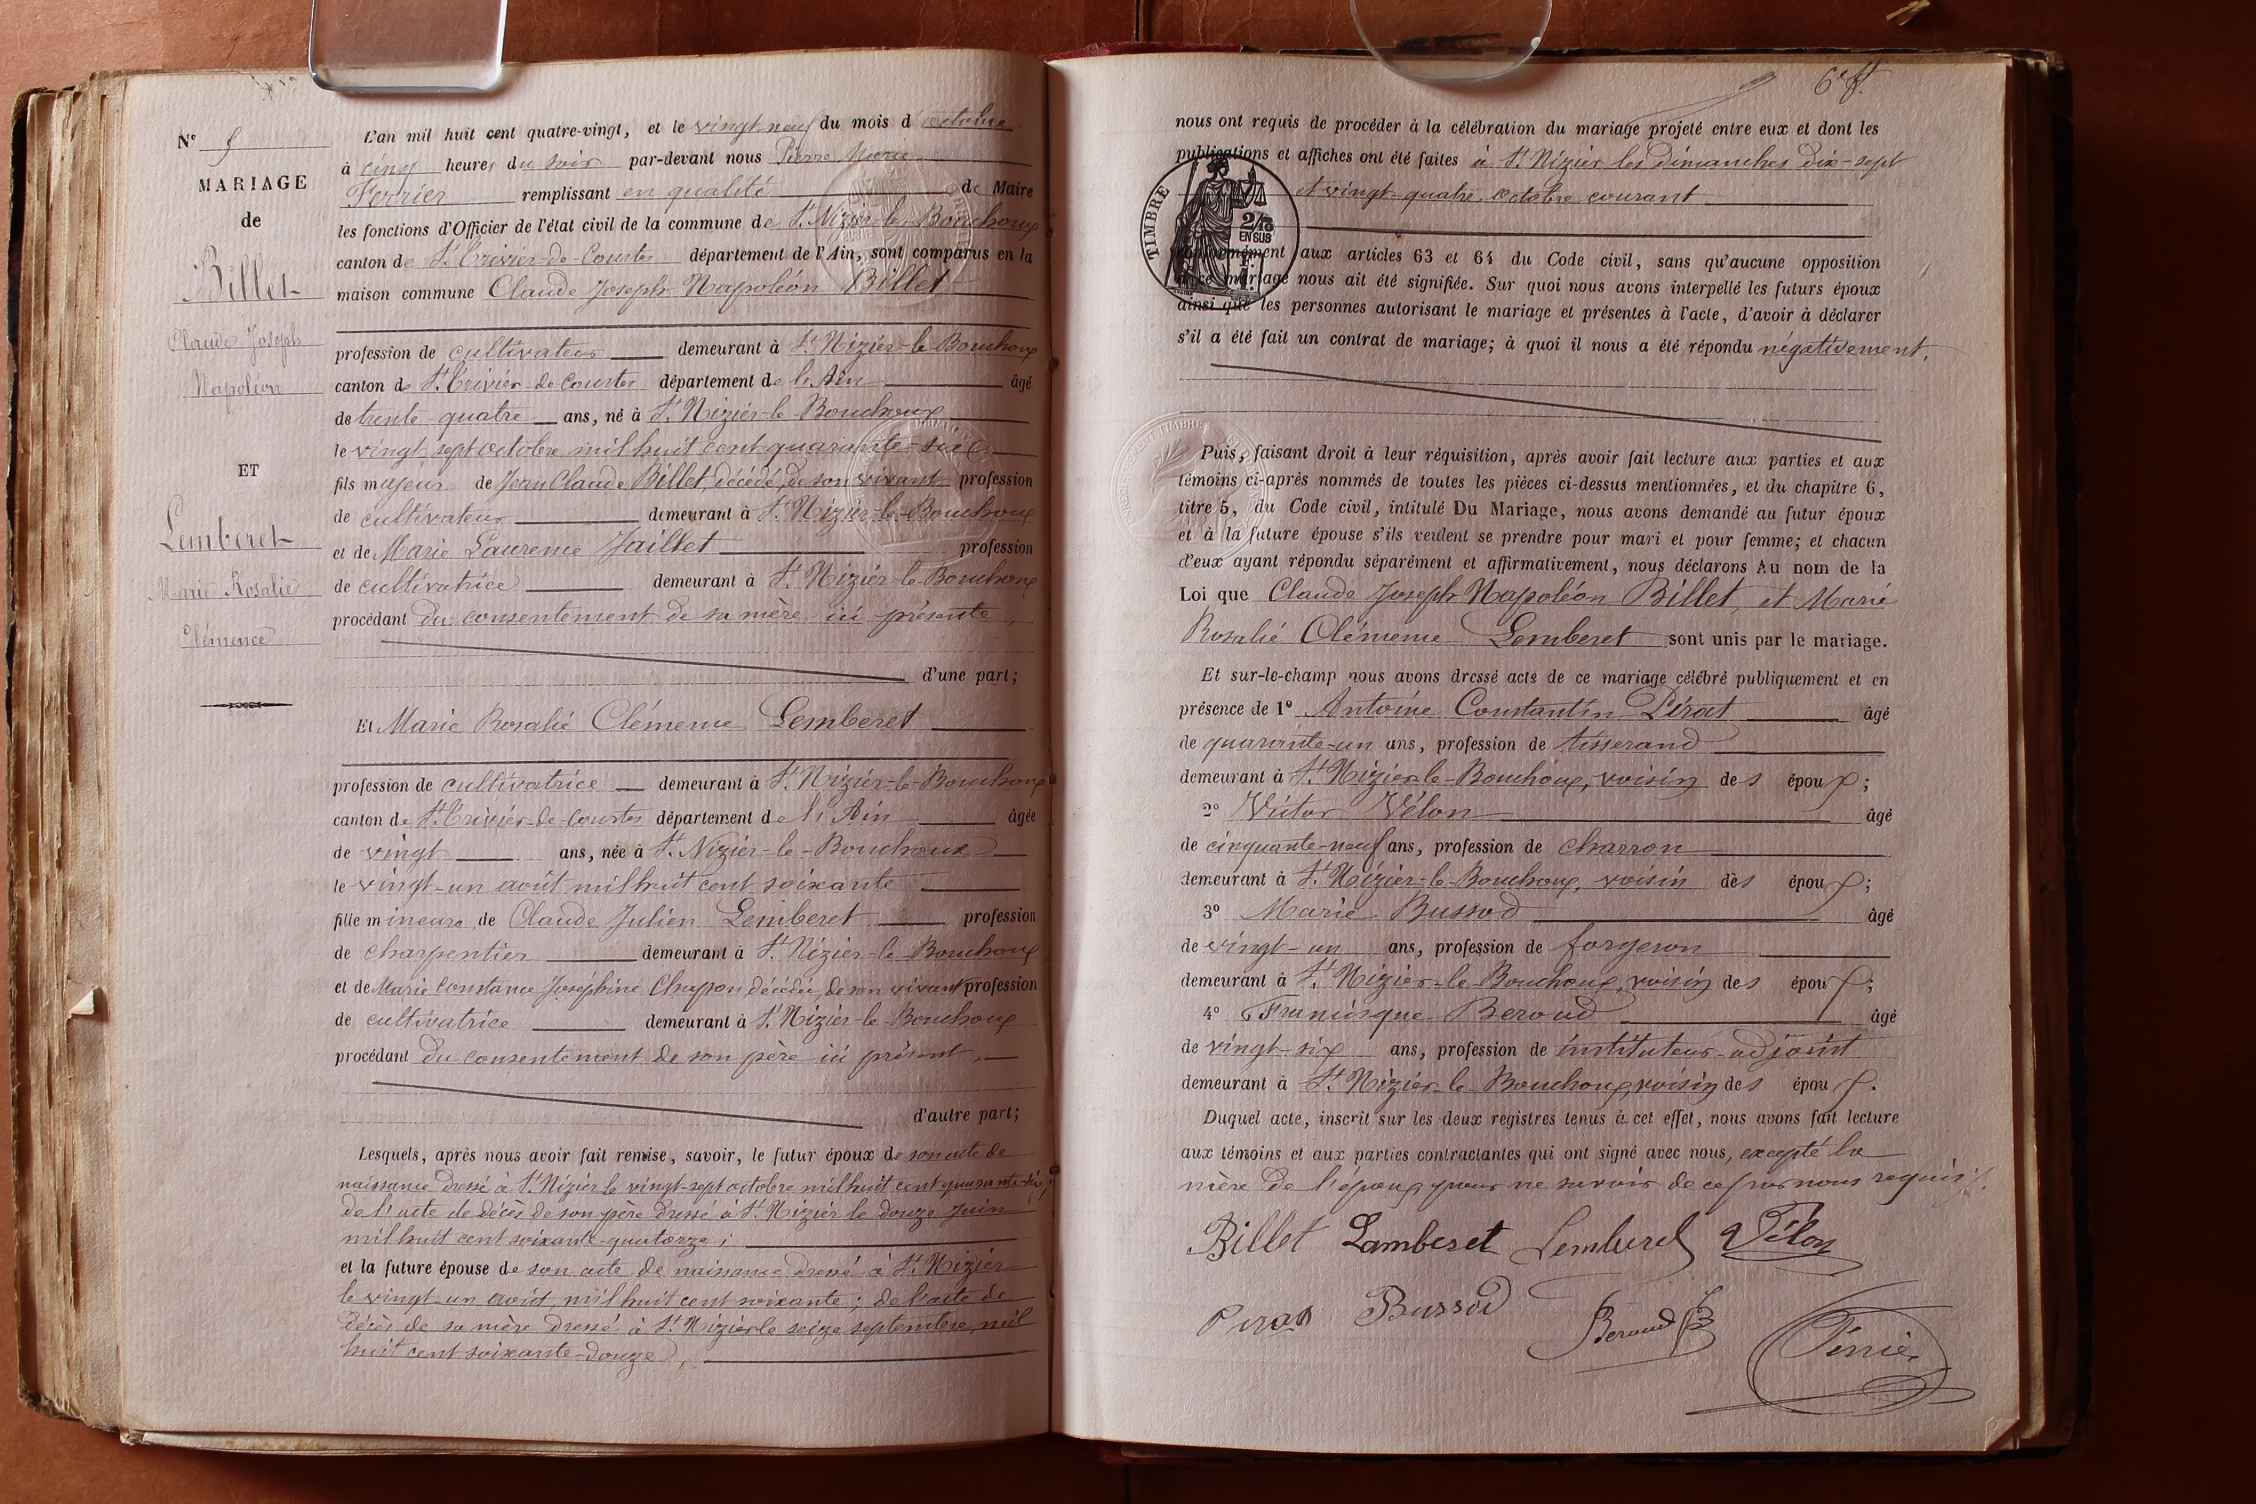 N°
MARIAGE
de
Billet
Claude Joseph
Napoléon
ET
Lemberet
Marie Rosalie
Clémence
L'an mil huit cent quatre-vingt, et le vingt neuf du mois d'octobre
à cinq heures du soir par-devant nous Pierre Marie
Ferrier remplissant en qualité de Maire
les fonctions d'Officier de l'état civil de la commune de St Nizier-le-Bouchoux
canton de St Trivier-de-Courtes département de l'Ain, sont comparus en la
maison commune Claude Joseph Napoléon Billet
profession de cultivateur demeurant à St Nizier-le-Bouchoux
canton de St Trivier-de-Courtes département de l'Ain âgé
de trente-quatre ans, né à St Nizier-le-Bouchoux
le vingt sept octobre mil huit cent quarante-six
fils majeur de Jean Claude Billet, décédé, de son vivant profession
de cultivateur demeurant à St Nizier-le-Bouchoux
et de Marie Laurence Jaillet profession
de cultivatrice demeurant à St Nizier-le-Bouchoux
procédant du consentement de sa mère ici présente,
d'une part;
Et Marie Rosalie Clémence Lemberet
profession de cultivatrice demeurant à St Nizier-le-Bouchoux
canton de St Trivier-de-Courtes département de l'Ain âgée
de vingt ans, née à St Nizier-le-Bouchoux
le vingt-un août mil huit cent soixante
fille mineure de Claude Julien Lemberet profession
de charpentier demeurant à St Nizier-le-Bouchoux
et de Marie Constance Joséphine Chapon, décédée, de son vivant profession
de cultivatrice demeurant à St Nizier-le-Bouchoux
procédant du consentement de son père ici présent,
d'autre part;
Lesquels, après nous avoir fait remise, savoir, le futur époux de son acte de
naissance dressé à St Nizier le vingt-sept octobre mil huit cent quarante-six;
de l'acte de décès de son père dressé à St Nizier le douze juin
mil huit cent soixante-quatorze;
et la future épouse de son acte de naissance dressé à St Nizier
le vingt-un août mil huit cent soixante; de l'acte de
décès de sa mère dressé à St Nizier le seize septembre mil
huit cent soixante-douze,
nous ont requis de procéder à la célébration du mariage projeté entre eux et dont les
publications et affiches ont été faites à St Nizier les dimanches dix-sept
et vingt-quatre octobre courant.
TIMBRE
2/10
EN SUS
conformément aux articles 63 et 64 du Code civil, sans qu'aucune opposition
à ce mariage nous ait été signifiée. Sur quoi nous avons interpellé les futurs époux
ainsi que les personnes autorisant le mariage et présentes à l'acte, d'avoir à déclarer
s'il a été fait un contrat de mariage; à quoi il nous a été répondu négativement.
Puis, faisant droit à leur réquisition, après avoir fait lecture aux parties et aux
témoins ci-après nommés de toutes les pièces ci-dessus mentionnées, et du chapitre 6,
titre 5, du Code civil, intitulé Du Mariage, nous avons demandé au futur époux
et à la future épouse s'ils veulent se prendre pour mari et pour femme; et chacun
d'eux ayant répondu séparément et affirmativement, nous déclarons Au nom de la
Loi que Claude Joseph Napoléon Billet, et Marie
Rosalie Clémence Lemberet sont unis par le mariage.
Et sur-le-champ nous avons dressé acte de ce mariage célébré publiquement et en
présence de 1° Antoine Constantin Pérat âgé
de quarante-un ans, profession de tisserand
demeurant à St Nizier-le-Bouchoux, voisin des époux;
2° Victor Vélon âgé
de cinquante-neuf ans, profession de charron
demeurant à St Nizier-le-Bouchoux, voisin des époux;
3° Marie Bussod âgé
de vingt-un ans, profession de forgeron
demeurant à St Nizier-le-Bouchoux, voisin des époux;
4° Francisque Beroud âgé
de vingt-six ans, profession de instituteur-adjoint
demeurant à St Nizier-le-Bouchoux, voisin des époux.
Duquel acte, inscrit sur les deux registres tenus à cet effet, nous avons fait lecture
aux témoins et aux parties contractantes qui ont signé avec nous, excepté la
mère de l'époux pour ne savoir de ce par nous requis.
Billet Lamberet Lemberet Vélon
Perat Bussod Beroud Ferrier